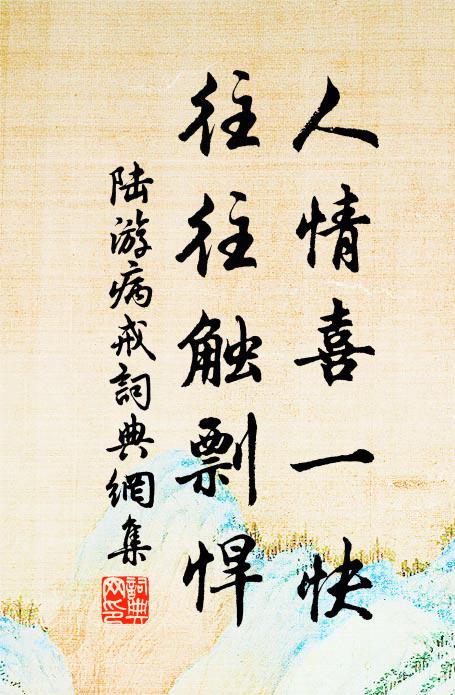 人情喜一快
往往触剽悍
陆游病戒詞典網集
詞典